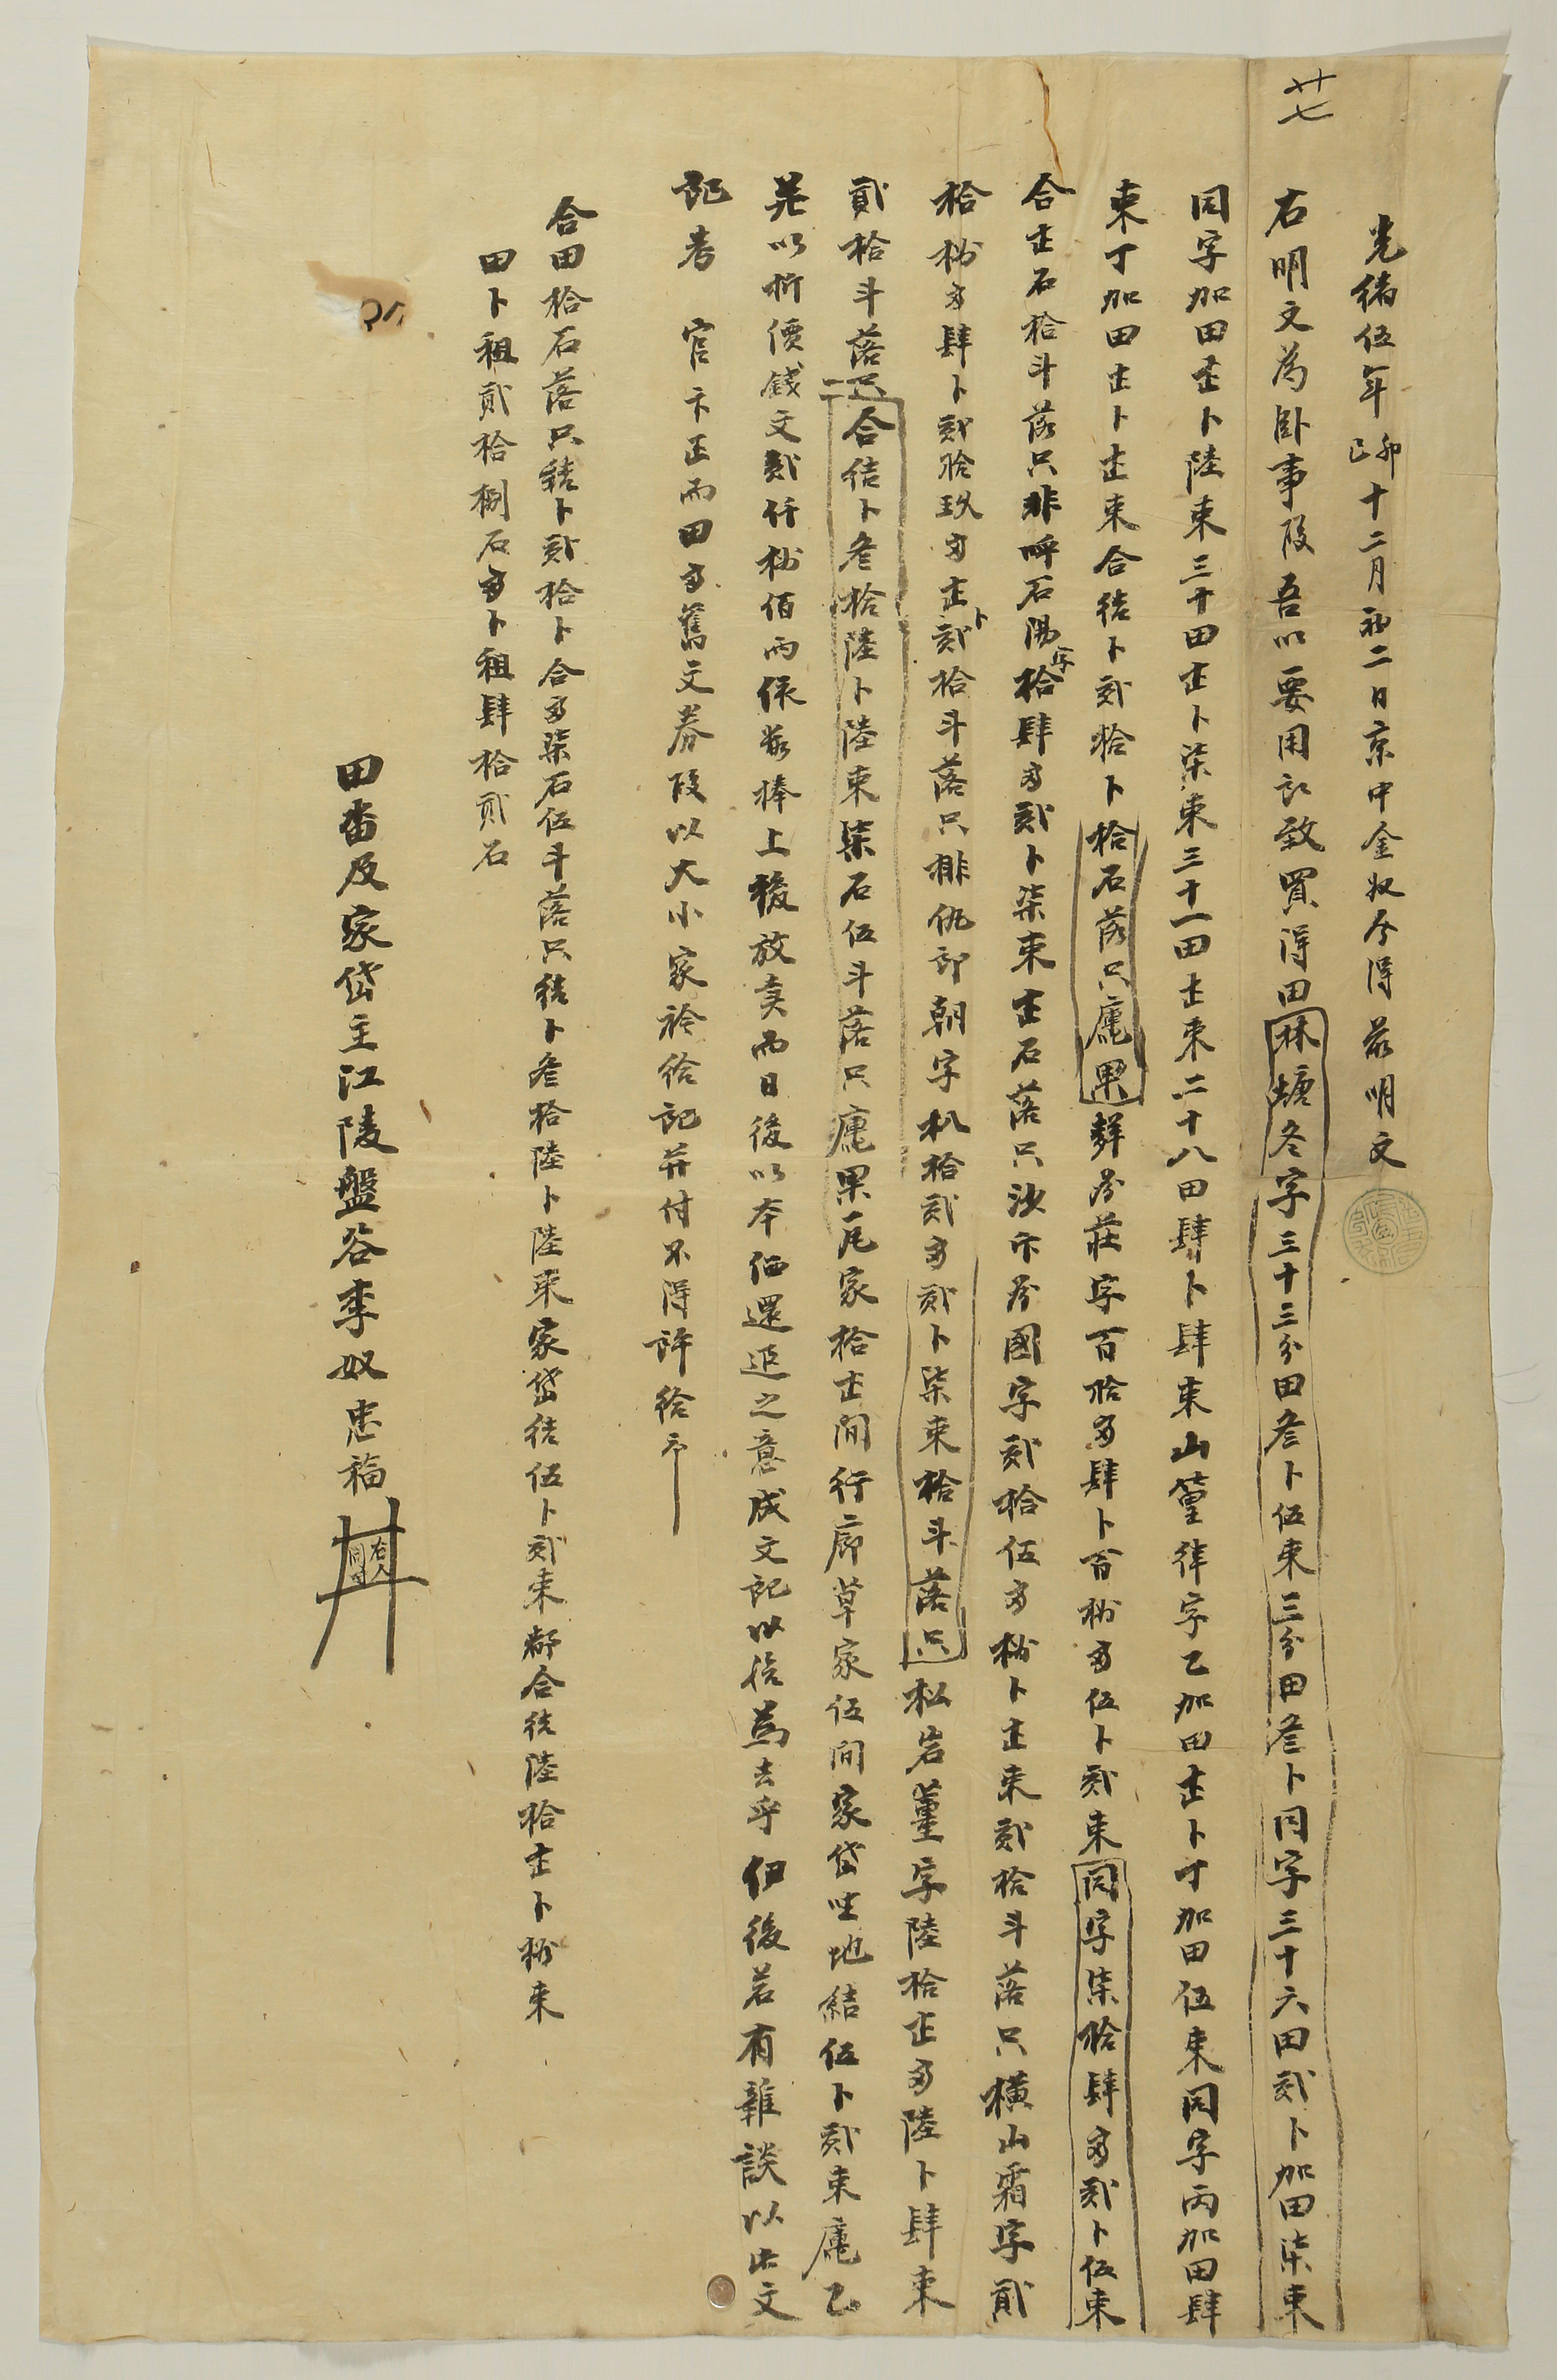 廿七
光緖伍年己卯十二月初二日京中金奴今得前明文
右明文爲臥事段吾以要用所致買得田林塘冬字三十三分田叁卜伍束三分田叁卜同字三十六田貳卜加田柒束
同字加田壹卜陸束三十田壹卜柒束三十一田壹束二十八田肆卜肆束山篁律字乙加田壹卜丁加田伍束同字丙加田肆
束丁加田壹卜壹束合結卜貳拾卜拾石落只庫果 莊字百拾畓肆卜百捌畓伍卜貳束同字柒拾肆畓貳卜伍束
合壹石拾斗落只非呼石湯字拾肆畓貳卜柒束壹石落只沙 國字貳拾伍畓捌卜壹束貳拾斗落只橫山霜字貳
拾捌畓肆卜貳拾玖畓壹卜貳拾斗落只排仇 朝字 拾貳畓貳卜柒束拾斗落只松岩薑字陸拾壹畓陸卜肆束
貳拾斗落只已合結卜叁拾陸卜陸束柒石伍斗落只庫果瓦家拾壹間行廊草家伍間家垈坐地結伍卜貳束庫乙
 以折價錢文貳仟捌佰兩依數捧上後放賣而日後以本価還退之意成文記以給爲去乎但後若有雜談以此文
記告 官卞正而田畓舊文券段以大小家衿給記幷付不得許給 
合田拾石落只結卜貳拾卜合畓柒石伍斗落只結卜叁拾陸卜陸束家垈結伍卜貳束都合結陸拾壹卜捌束
田卜租貳拾捌石畓卜租肆拾貳石
田畓及家垈主江陵盤谷李奴忠福
右人同寸